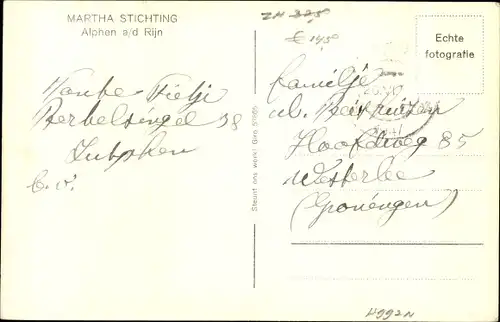 MARTHA STICHTING
Alphen a/d Rijn
ZH 325
€ 1450
Echte
fotografie
Tante Fietji
Berkelsingel 38
Zutphen
Steunt ons werk! Giro 51685
familje
Hoofdweg 85
Westerlee
(Groningen)
H992N